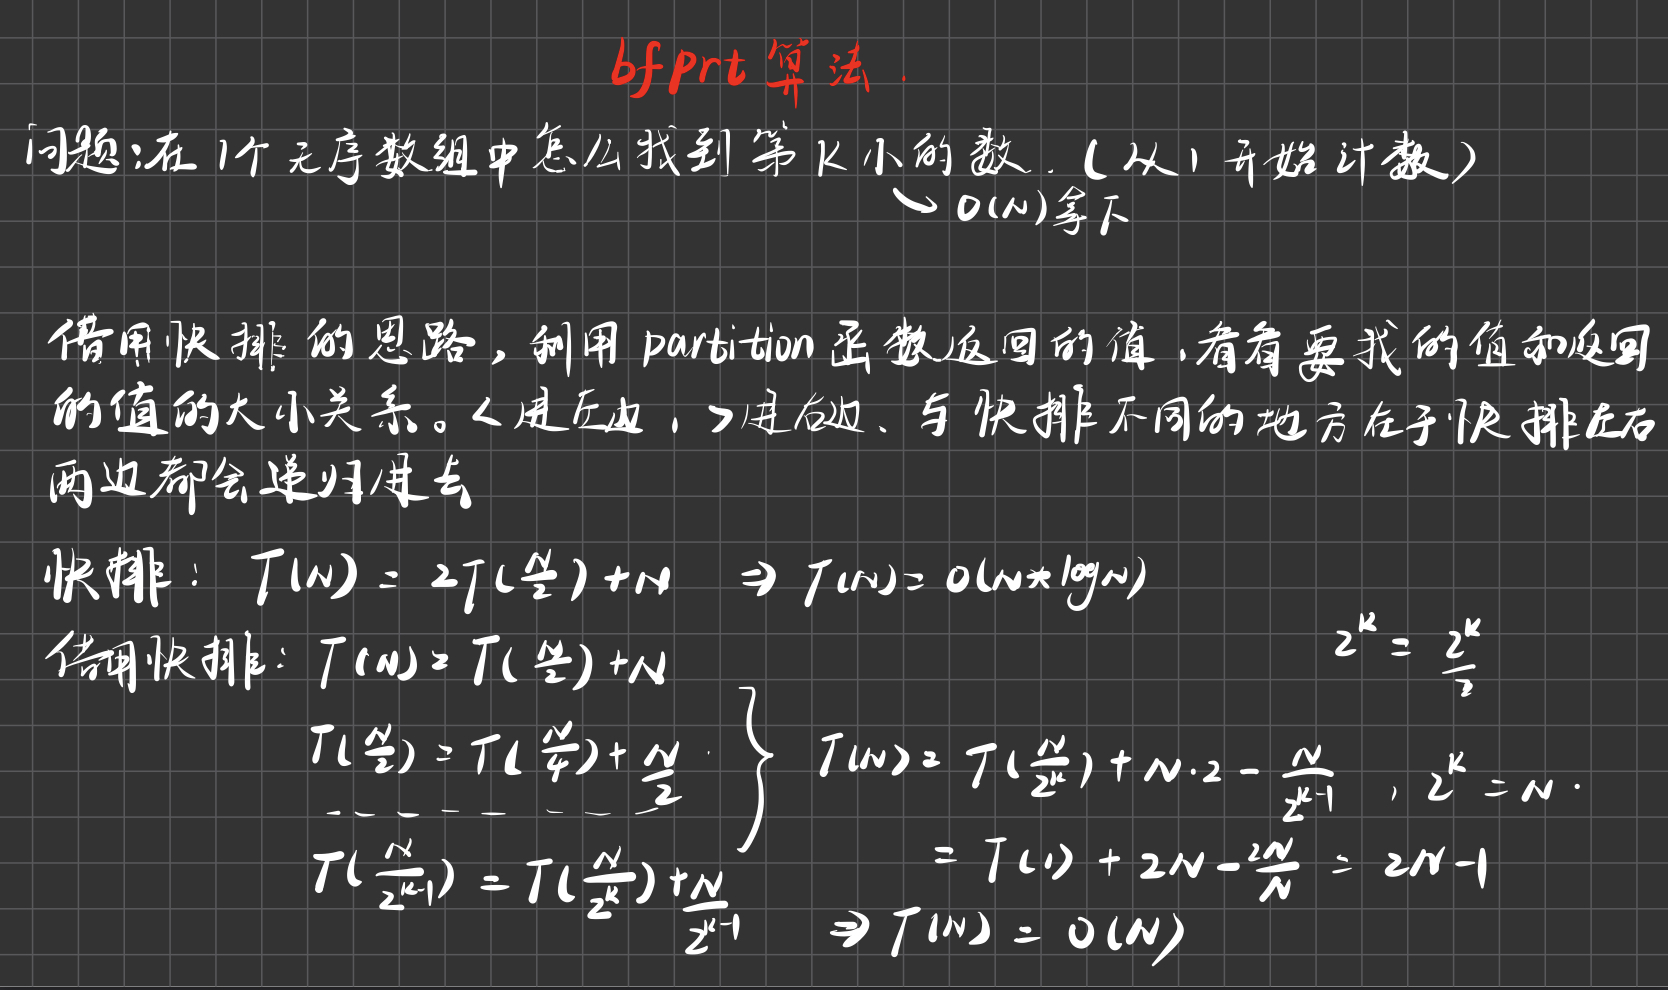 bfprt 算法.
问题:在1个无序数组中怎么找到第K小的数.(从1开始计数)
↘ O(N)拿下
借用快排的思路,利用partition函数返回的值,看看要找的值和返回
的值的大小关系。<进左边,>进右边、与快排不同的地方在于快排左右
两边都会递归进去
快排: T(N) = 2T(N/2) + N ⇒ T(N) = O(N*logN)
借用快排: T(N) = T(N/2) + N
2^K = 2^K/2
T(N/2) = T(N/4) + N/2
T(N) = T(N/2^K) + N·2 - N/2^(K-1) , 2^K = N.
T(N/2^(K-1)) = T(N/2^K) + N/2^(K-1)
= T(1) + 2N - 2N/N = 2N-1
⇒ T(N) = O(N)